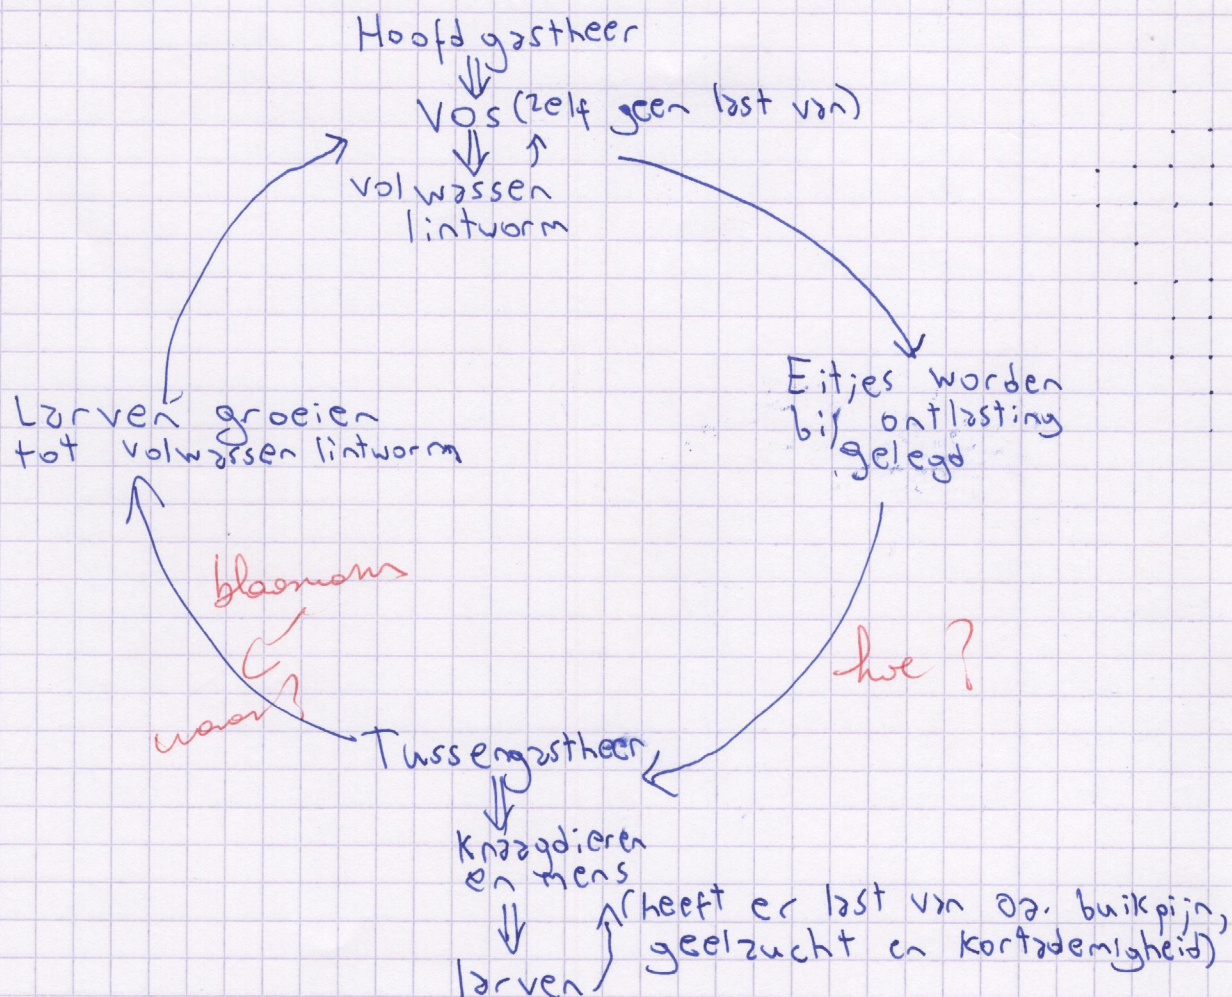 Hoofdgastheer
Vos (zelf geen last van)
volwassen
lintworm
Eitjes worden
bij ontlasting
gelegd
hoe?
Tussengastheer
Knaagdieren
en mens
(heeft er last van oa. buikpijn,
geelzucht en kortademigheid)
larven
waar?
Larven groeien
tot volwassen lintworm